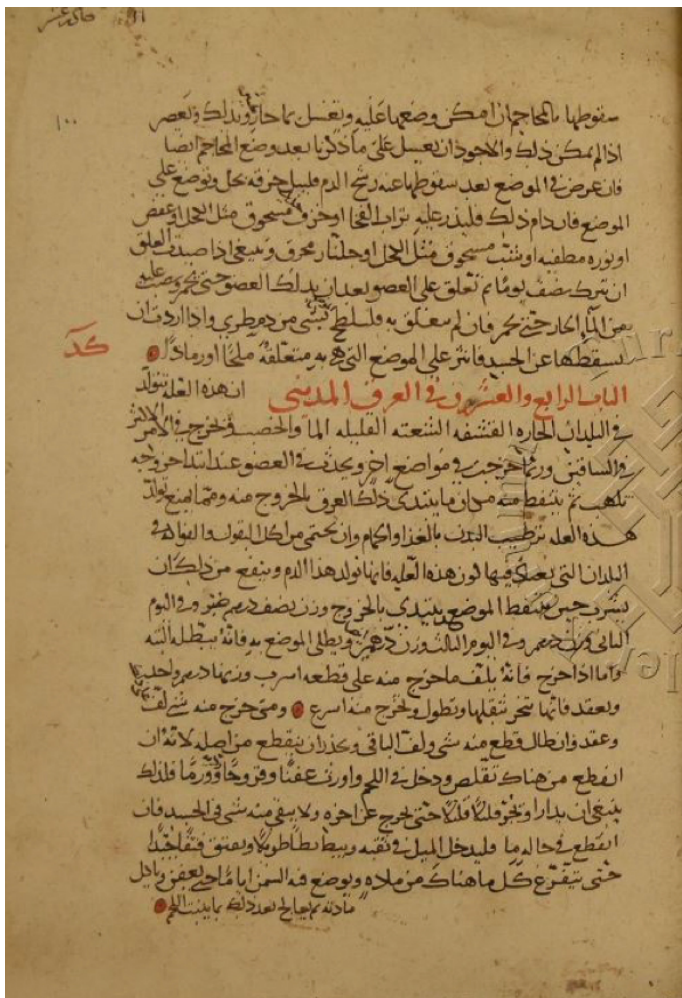 سقوطها بالمحاجم ان امكن وضعها عليه وتغسل بماء حار ويدلك ويعصر
اذا لم يمكن ذلك والاجود ان يغسل على ما ذكرنا بعد وضع المحاجم ايضا
فان عرض في الموضع بعد سقوطها عنه رشح الدم فليبل خرقه بخل وتوضع على
الموضع فان دام ذلك فليذر عليه تراب الفخار او خزف مسحوق مثل الكحل او عفص
او نوره مطفيه او شب مسحوق مثل الكحل او جلنار محرق وينبغي اذا صيدت العلق
ان تترك نصف يوم ثم تعلق على العضو بعد ان يدلك العضو حتى يحمر ويصب عليه
من الماء الحار حتى يحمر فان لم تتعلق به فليلطخ بشي من دم طري واذا اردت ان
تسقطها عن الجسد فانثر على الموضع التي هي به متعلقة ملحا او رمادا
كد
الباب الرابع والعشرون في العرق المديني ان هذه العله تتولد
في البلدان الحاره القشفه القليله الماء والخصب وتخرج في الامر الاكثر
في الساقين وربما خرجت في مواضع اخر ويحدث في العضو عند ابتداء خروجه
تلهب ثم يتنفط منه مكان ما يبتدي ذلك العرق بالخروج منه ومما يمنع تولد
هذه العله ترطيب البدن بالغذا والحمام وان يحتمي من اكل البقول والفواكه في
البلدان التي يعتاد فيها كون هذه العله فانها تولد هذا الدم وينفع من ذلك ان
يشرب حين يتنفط الموضع يبتدي بالخروج وزن نصف درهم صبر وفي اليوم
الثاني وزن درهم وفي اليوم الثالث وزن درهمين ويطلى الموضع به فانه يبطله البته
واما اذا خرج فانه يلف ما خرج منه على قطعه اسرب وزنها درهم واحد
ويعقد فانها تنجر بثقلها وتطول وتخرج منه اسرع ومتى خرج منه شي لف
وعقد وان طال قطع منه شي ولف الباقي ويحذر ان ينقطع من اصله لانه ان
انقطع من هناك تقلص ودخل في اللحم واورث عفنا وقروحا وورما فلذلك
ينبغي ان يدارا ويجر قليلا قليلا حتى يخرج عن اخره ولا يبقى منه شي في الجسد فان
انقطع في حاله ما فليدخل الميل في ثقبه ويبط بطا طويلا ويعمق فتقا جيدا
حتى يتفرغ كل ما هناك من ماده ويوضع فيه السمن اياما حتى يعفن وتاكل
مادته ثم يعالج بعد ذلك بما ينبت اللحم